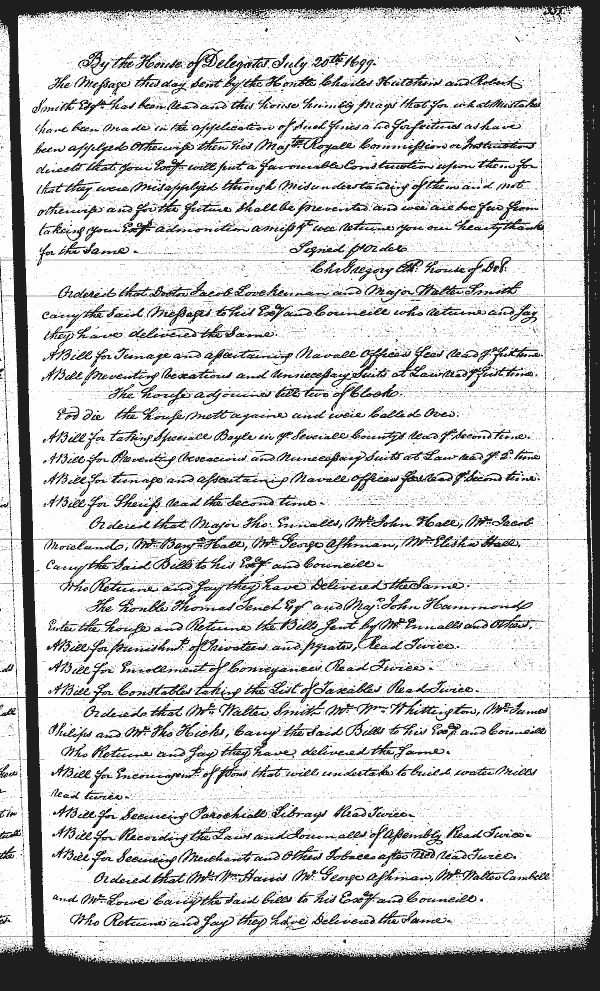 By the House of Delegates July 20th 1699.
The Message this day sent by the Honble Charles Hutchins and Robert
Smith Esqrs has been Read and this house humbly prays that for what Mistakes
have been made in the application of such fines and forfeitures as have
been applyed Otherwise then his Majtys Royall Commission or Instructions
directs that your Excy will put a favourable Construction upon them for
that they were Misapplyed through Misunderstanding of them and not
otherwise and for the future shall be prevented and wee are soe far from
taking your Excys admonition amiss yt wee returne you our hearty thanks
for the Same.
Signed p Order
Chr Gregory Clk house of Del.
Ordered that Doctor Jacob Lookerman and Major Walter Smith
carry the Said Messages to his Excy and Councill who returne and Say
they have delivered the Same.
A Bill for Tunage and ascertaining Navall Officers fees read ye first time.
A Bill Preventing Vexatious and Unnecessary Suits at Law read ye first time.
The house adjournes till two of Clock.
Eod die the house mett againe and were Called Over.
A Bill for taking Speciall Bayle in ye Severall Countys read ye second time.
A Bill for Preventing Vexatious and Unnecessary Suits at Law read ye 2d time
A Bill for tunage and ascertaining Navall Officers fees read ye Second time.
A Bill for Sheriffs read the Second time.
Ordered that Major Tho: Ennalls, Mr John Hall, Mr Jacob
Moreland, Mr Benja Hall, Mr George Ashman, Mr Elisha Hall
Carry the Said Bills to his Excy and Councill.
Who Returne and Say they have Delivered the Same.
The honble Thomas Tench Esqr and Majr John Hammond
Enter the house and Returne the Bills Sent by Mr Ennalls and Others.
A Bill for punishmt. of Privateers and pyrates, Read Twice.
A Bill for Enrollment of Conveyances Read Twice.
A Bill for Constables taking the List of Taxables Read Twice.
Ordered that Mr Walter Smith Mr Wm Whittington, Mr James
Philips and Mr Tho Hicks, Carry the Said Bills to his Excy and Councill
Who Returne and Say they have delivered the Same.
A Bill for Encouragemt. of psons that will undertake to build water Mills
read twice.
A Bill for Secureing Parochiall Librarys Read Twice.
A Bill for Recording the Laws and Journalls of Assembly Read Twice.
A Bill for Secureing Merchants and Others Tobacco after read Twice.
Ordered that Mr Wm Harris Mr George Ashman, Mr Walter Cambell
and Mr Lowe Carry the Said bills to his Excy and Councill.
Who Returne and Say they have Delivered the Same.